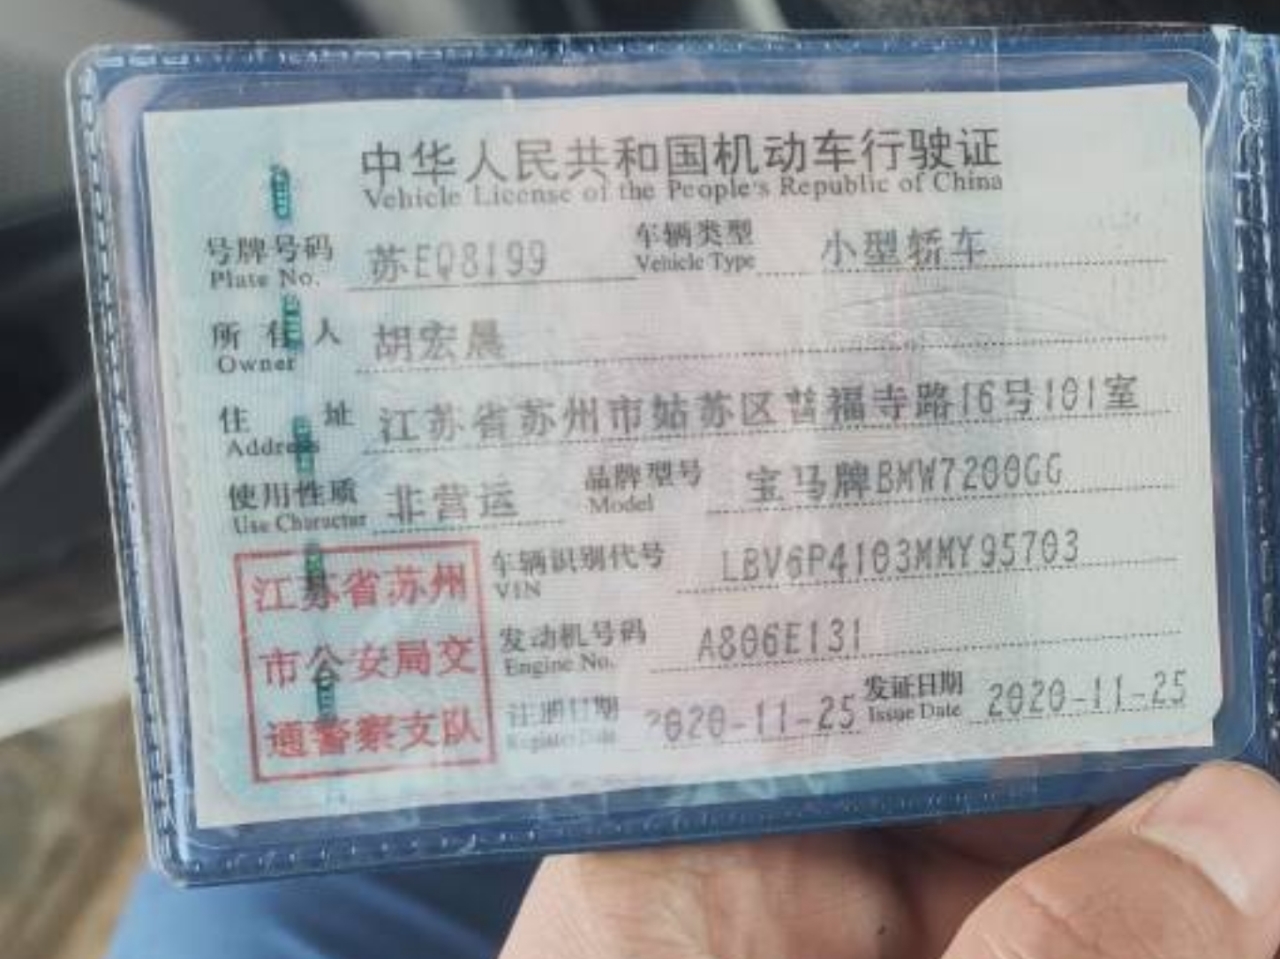 中华人民共和国机动车行驶证
Vehicle License of the People's Republic of China
号牌号码 苏EQ8199 车辆类型 小型轿车
Plate No. Vehicle Type
所有人 胡宏晨
Owner
住址 江苏省苏州市姑苏区普福寺路16号101室
Address
使用性质 非营运 品牌型号 宝马牌BMW7200GG
Use Character Model
江苏省苏州
市公安局交
通警察支队
车辆识别代号 LBV6P4103MMY95703
VIN
发动机号码 A806E131
Engine No.
注册日期 2020-11-25 发证日期 2020-11-25
Register Date Issue Date